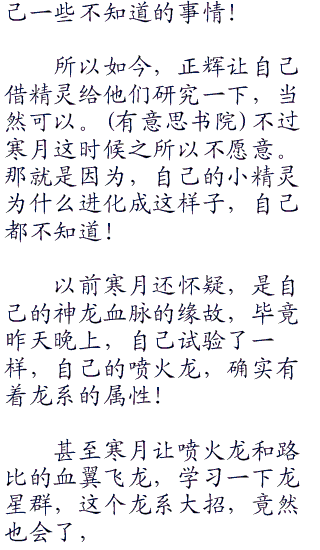 己一些不知道的事情！
所以如今，正辉让自己
借精灵给他们研究一下，当
然可以。(有意思书院)不过
寒月这时候之所以不愿意。
那就是因为，自己的小精灵
为什么进化成这样子，自己
都不知道！
以前寒月还怀疑，是自
己的神龙血脉的缘故，毕竟
昨天晚上，自己试验了一
样，自己的喷火龙，确实有
着龙系的属性！
甚至寒月让喷火龙和路
比的血翼飞龙，学习一下龙
星群，这个龙系大招，竟然
也会了，